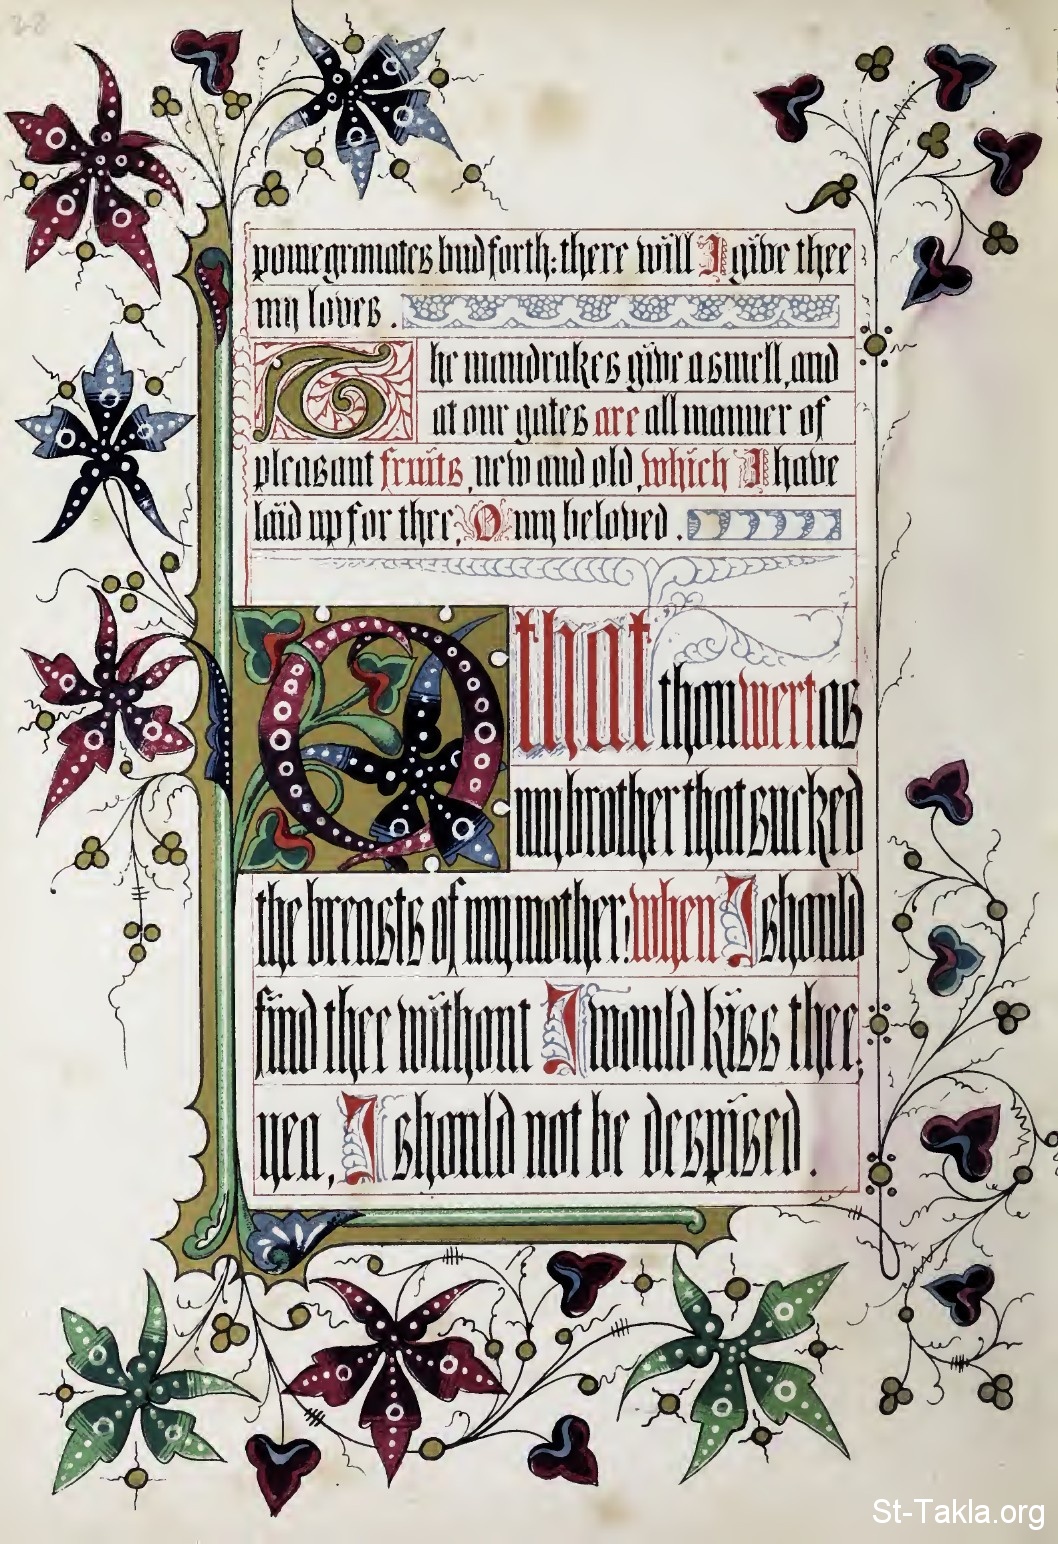 pomegranates bud forth: there will I give thee
my loves.
The mandrakes give a smell, and
at our gates are all manner of
pleasant fruits, new and old, which I have
laid up for thee, O my beloved.
O that
thou wert as
my brother that sucked
the breasts of my mother! when I should
find thee without I would kiss thee;
yea, I should not be despised.
St-Takla.org